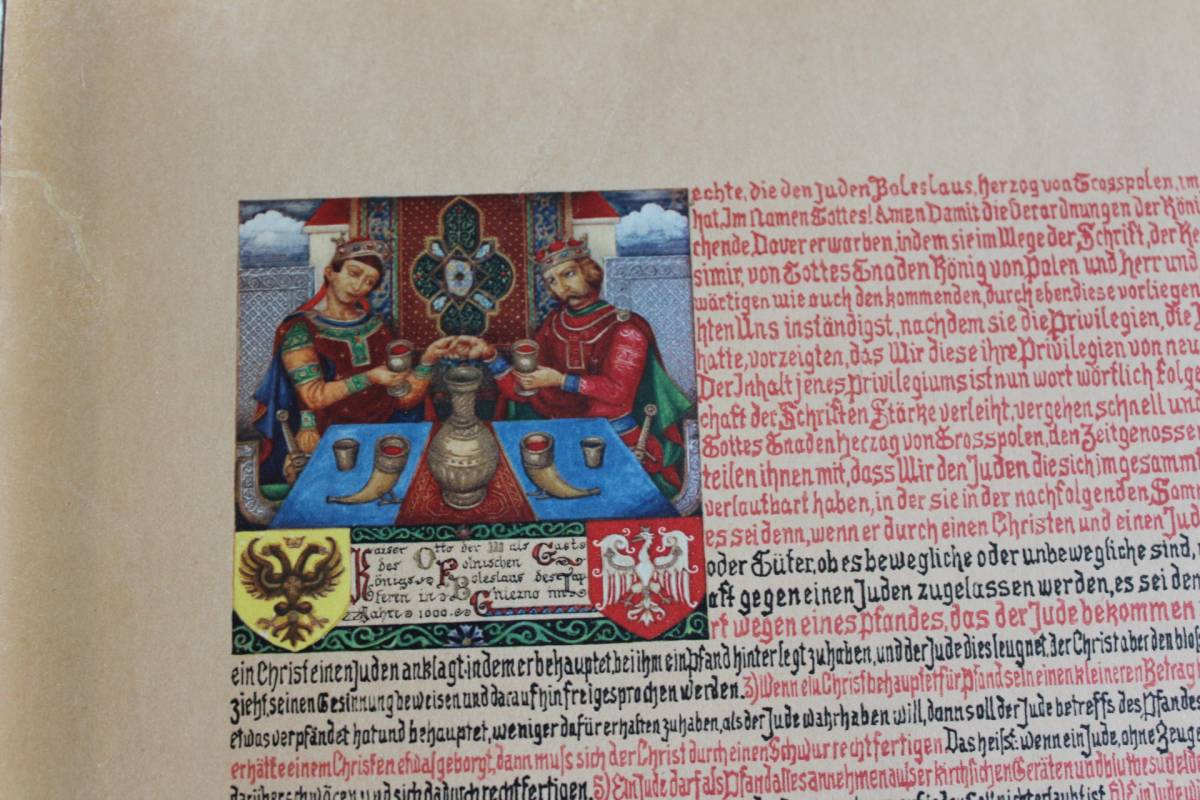 echte, die den Juden Boleslaus, Herzog von Grosspolen, im
hat. Im Namen Gottes! Amen Damit die Verordnungen der Kön
chende Dauer erwarben, indem sie im Wege der Schrift, der Re
simir, von Gottes Gnaden König von Polen und Herr und
wärtigen wie auch den kommenden, durch eben diese vorliegen
hten Uns inständigst, nachdem sie die Privilegien, die
hatte, vorzeigten, das Wir diese ihre Privilegien von neu
Der Inhalt jenes Privilegiums ist nun wort wörtlich folge
chaft der Schriften Stärke verleiht, vergehen schnell und
Gottes Gnaden Herzog von Grosspolen, den Zeitgenossen
teilen ihnen mit, dass Wir den Juden die sich im gesammt
verlautbart haben, in der sie in der nachfolgenden, Sam
es sei denn, wenn er durch einen Christen und einen Jud
oder Güter, ob es bewegliche oder unbewegliche sind,
aft gegen einen Juden zugelassen werden, es sei den
rf wegen eines Pfandes, das der Jude bekommen
Kaiser Otto der III als Gast
des Polnischen
Königs Boleslaus des Tap
feren in Gniezno im
Jahre 1000.
ein Christ einen Juden anklagt, indem er behauptet, bei ihm ein Pfand hinterlegt zu haben, und der Jude dies leugnet, der Christ aber den blos
zieht, seinen Gesinnung beweisen und daraufhin freigesprochen werden. 3) Wenn ein Christ behauptet für Pfand sei n einen kleineren Betrag
etwas verpfändet hat und behauptet, weniger dafür erhalten zu haben, als der Jude wahrhaben will, dann soll der Jude betreffs des Pfandes
er hätte einem Christen etwas geborgt, dann muß sich der Christ durch einen Schwur rechtfertigen. Das heißt: wenn ein Jude, ohne Zeuge
darüber schwören und sich dadurch rechtfertigen. 5) Ein Jude darf als Pfand alles annehmen außer kirchlichen Geräten und blutbesudelte